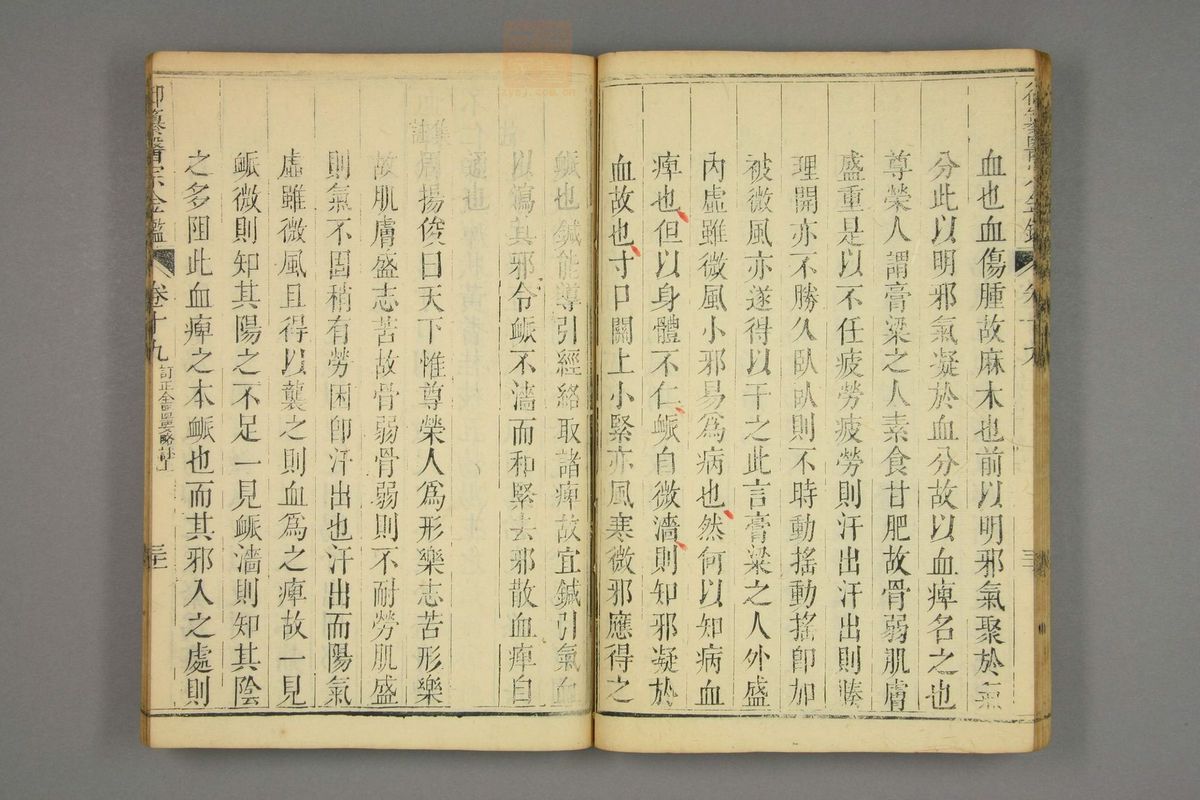 御纂醫宗金鑑 卷十九
血也血傷腫故麻木也前以明邪氣聚於氣
分此以明邪氣凝於血分故以血痺名之也
尊榮人謂膏粱之人素食甘肥故骨弱肌膚
盛重是以不任疲勞疲勞則汗出汗出則腠
理開亦不勝久臥臥則不時動搖動搖卽加
被微風亦遂得以干之此言膏粱之人外盛
內虛雖微風小邪易爲病也然何以知病血
痺也但以身體不仁脈自微濇則知邪凝於
血故也寸口關上小緊亦風寒微邪應得之
脈也鍼能導引經絡取諸痺故宜鍼引氣血
以瀉其邪令脈不濇而和緊去邪散血痺自
通也
集註
周揚俊曰天下惟尊榮人爲形樂志苦形樂
故肌膚盛志苦故骨弱骨弱則不耐勞肌盛
則氣不固稍有勞困卽汗出也汗出而陽氣
虛雖微風且得以襲之則血爲之痺故一見
脈微則知其陽之不足一見脈濇則知其陰
之多阻此血痺之本脈也而其邪入之處則
御纂醫宗金鑑 卷十九 訂正金匱要略註上